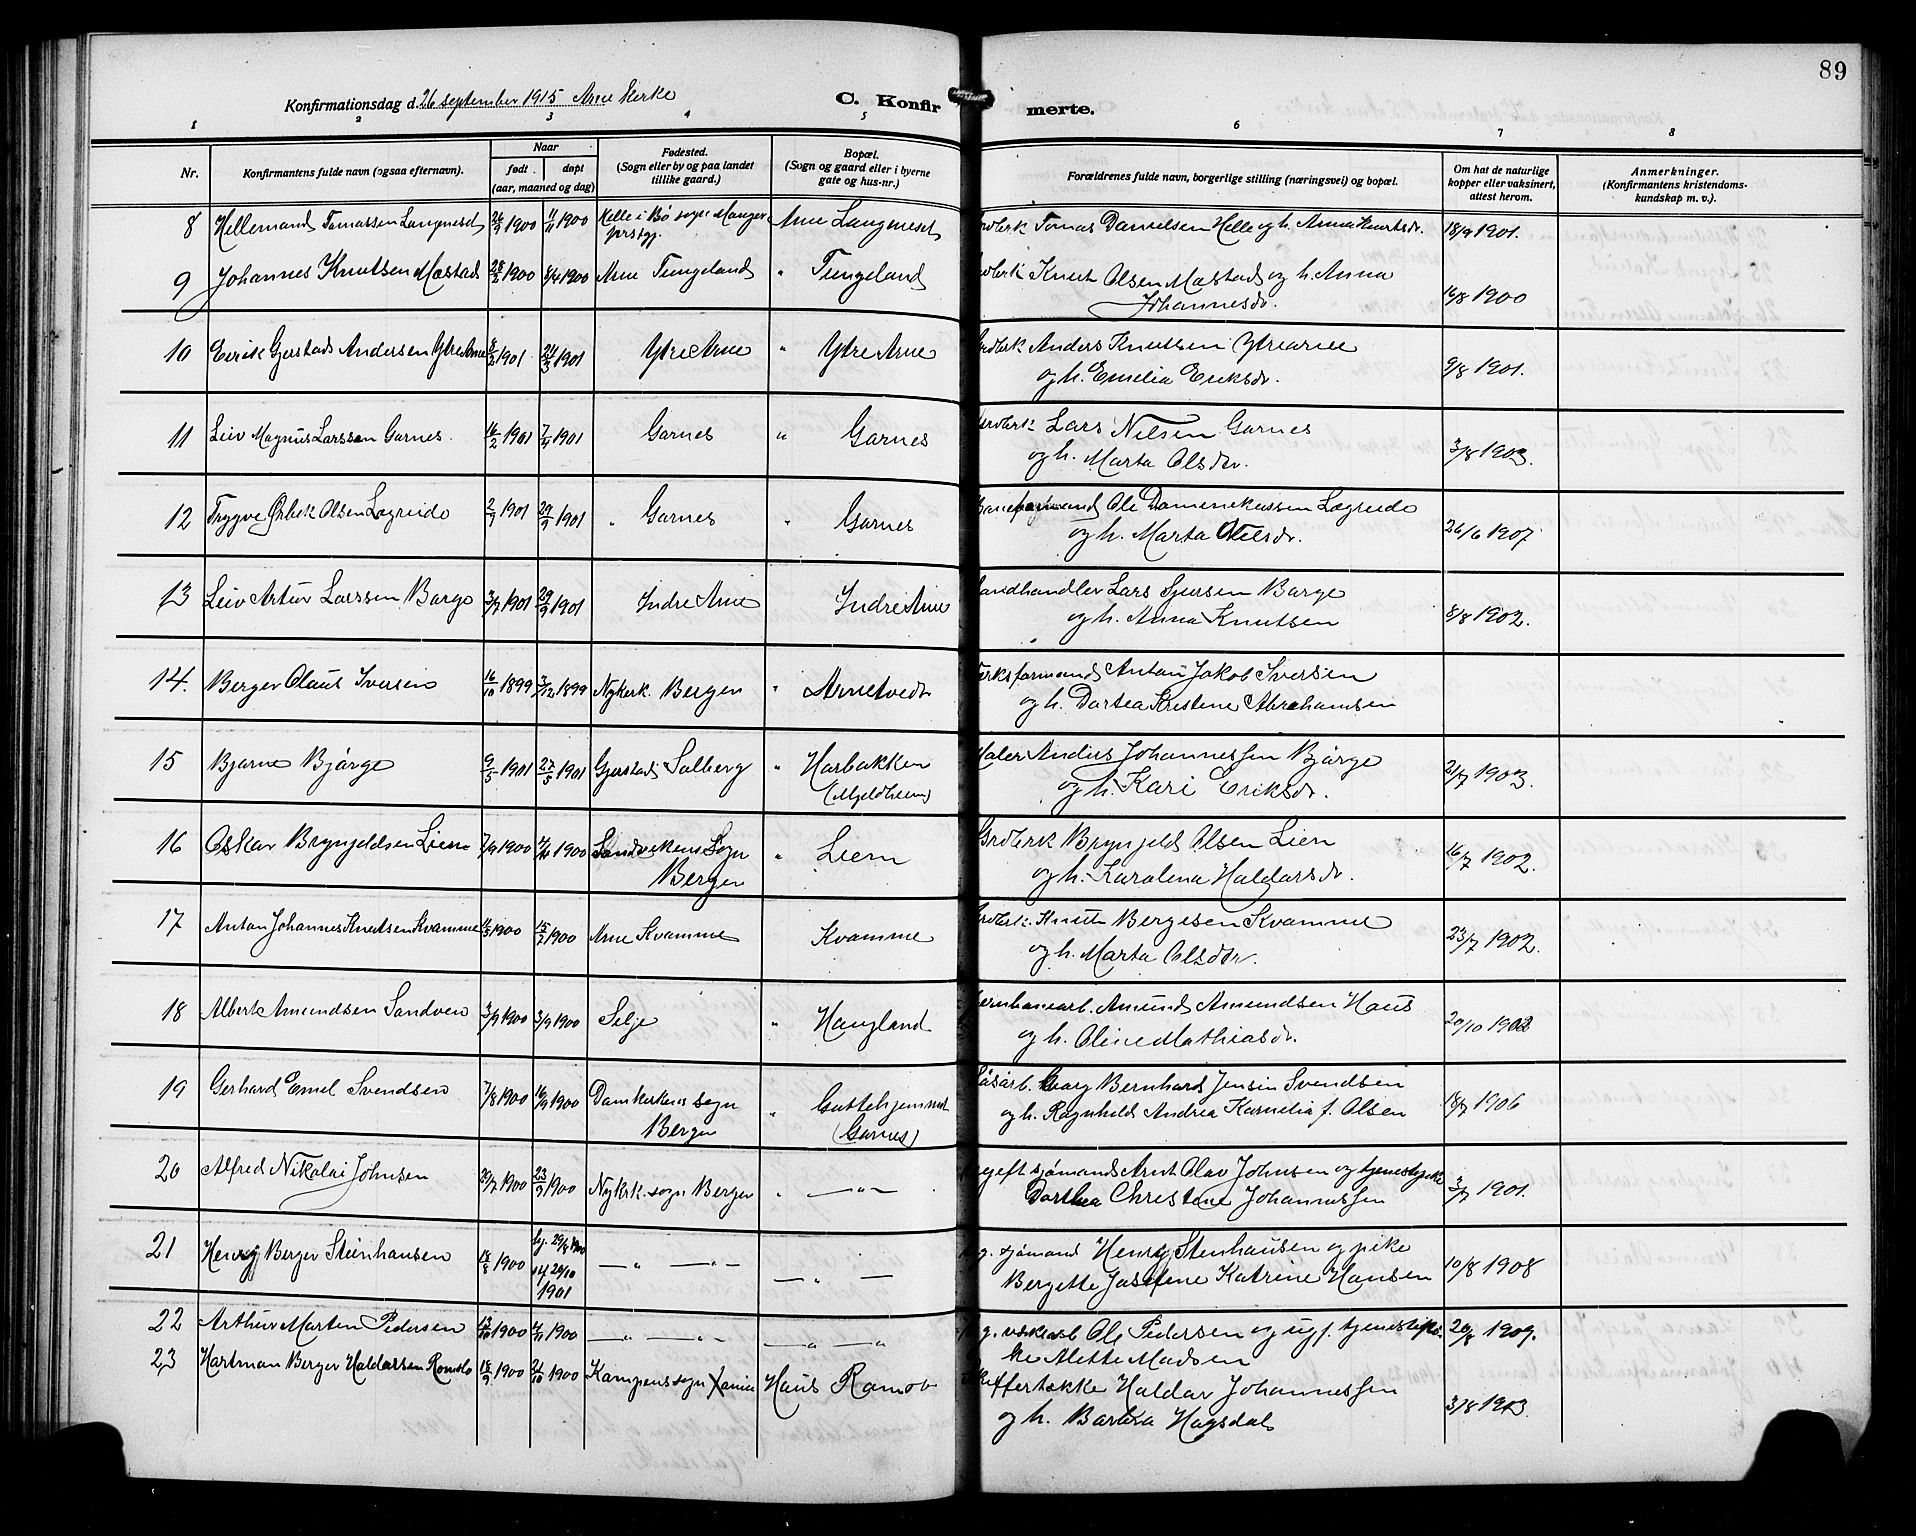 89
Konfirmationsdag d. 26 september 1915 Arne kirke
C. Konfirmerte.
1 2 3 4 5 6 7 8
Nr. Konfirmantens fulde navn (ogsaa efternavn). Naar født døpt (aar, maaned og dag) Fødested. (Sogn eller by og paa landet tillike gaard.) Bopæl. (Sogn og gaard eller i byerne gate og hus-nr.) Forældrenes fulde navn, borgerlige stilling (næringsvei) og bopæl. Om hat de naturlige kopper eller vaksinert, attest herom. Anmerkninger. (Konfirmantens kristendomskundskap m. v.).
8 Hellemand Tomassen Langneset 26/9 1900 11/11 1900 Helle i Bø sogn Manger prstgj. Arne Langneset Tomas Danielsen Helle og h. Anna Knutsdr. 18/9 1901.
9 Johannes Knutsen Mæstad 28/2 1900 8/4 1900 Arne Tungeland " Tungeland Knut Olsen Mæstad og h. Anna
Johannesdr. 16/8 1900
10 Eirik Gjerstad Andersen Ytre Arne 8/2 1901 24/3 1901 Ytre Arne " Ytre Arne Anders Knutsen Ytrearne
og h. Emelia Eriksdr. 9/8 1901.
11 Leiv Magnus Larssen Garnes. 16/2 1901 7/4 1901 Garnes " Garnes Lars Nilsen Garnes
og h. Marta Olsdr. 3/8 1903.
12 Trygve Ørbek Olsen Lægreid 2/9 1901 29/9 1901 " Garnes " Garnes Baneformand Ole Daminikussen Lægreid
og h. Marta Nilsdr. 26/6 1907
13 Leiv Artur Larssen Barge 3/7 1901 29/9 1901 Indre Arne Indre Arne Landhandler Lars Sjursen Barge
og h. Anna Knutsen 8/8 1902.
14. Berger Olaus Iversen 16/10 1899 3/12 1899 Nykirk. Bergen " Arnetvedt Verksformand Antan Jakob Iversen
og h. Dortea Kristene Abrahamsen
15 Bjarne Bjørge 9/5 1901 27/5 1901 Gjerstad Solberg " Harbakken (Mjeldheim) Maler Anders Johannessen Bjørge
og h. Kari Eriksdr. 21/7 1903.
16 Oskar Brynjeldsen Lien 7/9 1900 1900 Sandvikens Sogn Bergen " Lien Grdbrk Brynjeld Olsen Lien
og h. Karolina Haldorsdr. 16/7 1902.
17 Antan Johannes Knutsen Kvamme 1900 15/7 1900 Arne Kvamme Kvamme Knut Bergesen Kvamme
og h. Marta Olsdr. 23/7 1902.
18 Albert Amundsen Sandven 3/9 1900 3/9 1900 Selje " Haugland Jernbanearb. Amund Amundsen Haus
og h. Oline Mathiasdr. 20/10 1902
19 Gerhard Emel Svendsen 7/8 1900 16/9 1900 Domkirkens sogn Bergen " Guttehjemmet (Garnes) Georg Bernhard Jensen Svendsen
og h. Ragnhild Andrea Karnelia f. Olsen 18/7 1906
20 Alfred Nikolai Johnsen 20/7 1900 23/9 1900 Nykrk. sogn Bergen " —"— ugift sjømand Arnt Olav Johnsen og tjenestepike
Dorthea Christene Johannessen 3/7 1901.
21 Henry Berger Steinhausen 18/8 1900 hj. 29/8 1900 1901 —"— —"— —"— ug. sjømand Henry Stenhausen og pike
Bergette Josefine Katrine Hansen 10/8 1908
22 Arthur Marten Pedersen 13/10 1900 4/11 1900 —"— —"— —"— " Ole Pedersen og ugf. tjenestepi-
ke Alette Madsen 20/8 1909.
23 Hartman Berger Haldorssen Romslo 18/9 1900 21/10 1900 Kampens sogn Xania Haus Ramsl. Haldor Johannessen
og h. Barbra Hagsdal 3/8 1903.